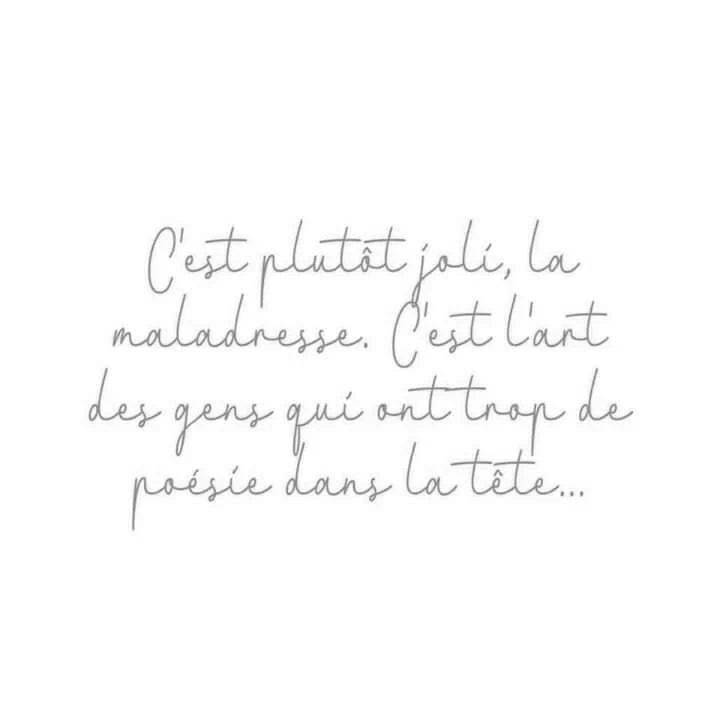 C'est plutôt joli, la
maladresse. C'est l'art
des gens qui ont trop de
poésie dans la tête...